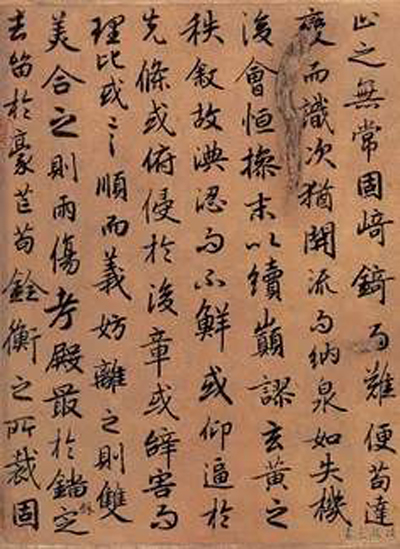 止之無常固崎錡而難便苟達
變而識次猶開流而納泉如失機
後會恒操末以續顛謬玄黃之
秩敘故淟涊而不鮮或仰逼於
先條或俯侵於後章或辭害而
理比或言順而義妨離之則雙
美合之則兩傷考殿最於錙銖定
去留於豪芒苟銓衡之所裁固